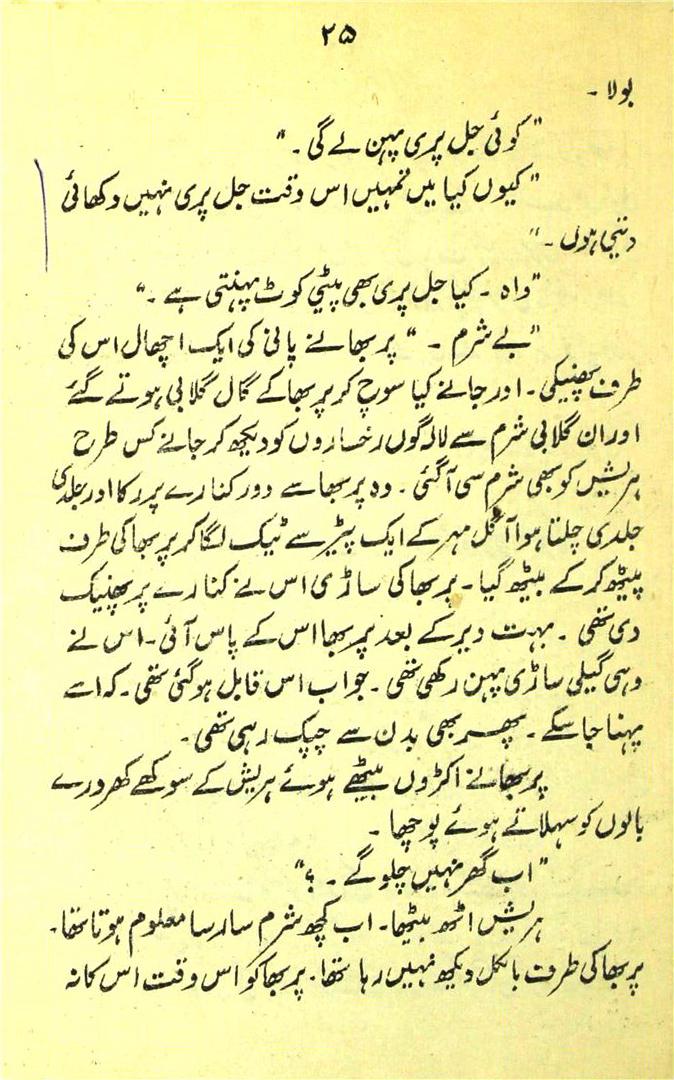 ۲۵
بولا ۔
"کوئی جل پری پہن لے گی ۔"
"کیوں کیا میں تمہیں اس وقت جل پری نہیں دکھائی
دیتی ہوں ۔"
"واہ ۔ کیا جل پری بھی پیٹی کوٹ پہنتی ہے ۔"
"بے شرم ۔" پربھا نے پانی کی ایک اچھال اس کی
طرف پھینکی ۔ اور جانے کیا سوچ کر پربھا کے گال گلابی ہوتے گئے
اور ان گلابی شرم سے لالہ گوں رخساروں کو دیکھ کر جانے کس طرح
ہریش کو بھی شرم سی آ گئی ۔ وہ پربھا سے دور کنارے پر رکا اور جلدی
جلدی چلتا ہوا آ گل مہر کے ایک پیڑ سے ٹیک لگا کر پربھا کی طرف
پیٹھ کر کے بیٹھ گیا ۔ پربھا کی ساڑی اس نے کنارے پر پھینک
دی تھی ۔ بہت دیر کے بعد پربھا اس کے پاس آئی ۔ اس نے
وہی گیلی ساڑی پہن رکھی تھی ۔ جو اب اس قابل ہو گئی تھی ۔ کہ اسے
پہنا جا سکے ۔ پھر بھی بدن سے چپک رہی تھی ۔
پربھا نے اکڑوں بیٹھے ہوئے ہریش کے سوکھے کھردرے
بالوں کو سہلاتے ہوئے پوچھا ۔
"اب گھر نہیں چلو گے ۔ ؟"
ہریش اٹھ بیٹھا ۔ اب کچھ شرم سار سا معلوم ہوتا تھا ۔
پربھا کی طرف بالکل دیکھ نہیں رہا تھا ۔ پربھا کو اس وقت اس کا نہ